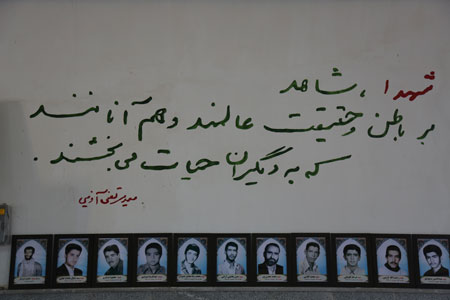 شهدا ، شاهد
بر باطن و حقیقت عالمند و هم آنانند
که به دیگران حیات می بخشند .
سید مرتضی آوینی